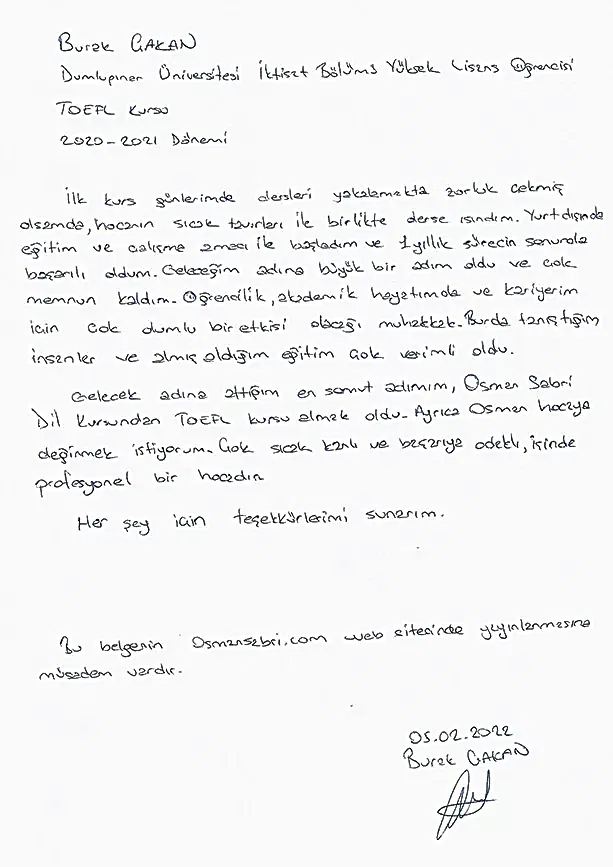 Burak ÇAKAN
Dumlupınar Üniversitesi İktisat Bölümü Yüksek Lisans Öğrencisi
TOEFL Kursu
2020-2021 Dönemi
İlk kurs günlerimde dersleri yakalamakta zorluk çekmiş
olsamda, hocanın sıcak tavırları ile birlikte derse ısındım. Yurt dışında
eğitim ve çalışma amacı ile başladım ve 1 yıllık sürecin sonunda
başarılı oldum. Geleceğim adına büyük bir adım oldu ve çok
memnun kaldım. Öğrencilik, akademik hayatımda ve kariyerim
için çok olumlu bir etkisi olacağı muhakkak. Burda tanıştığım
insanlar ve almış olduğum eğitim çok verimli oldu.
Gelecek adına attığım en somut adımım, Osman Sabri
Dil Kursundan TOEFL kursu almak oldu. Ayrıca Osman hocaya
değinmek istiyorum. Çok sıcak kanlı ve başarıya odaklı, işinde
profesyonel bir hocadır.
Her şey için teşekkürlerimi sunarım.
Bu belgenin Osmansabri.com web sitesinde yayınlanmasına
müsadem vardır.
05.02.2022
Burak ÇAKAN